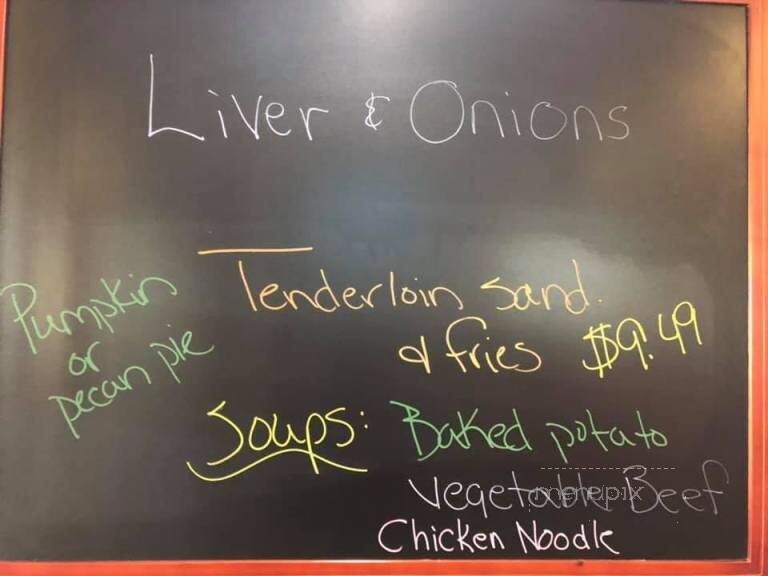 Liver & Onions
Tenderloin Sand.
& fries $9.49
Pumpkin
or
pecan pie
Soups: Baked potato
Vegetable Beef
Chicken Noodle
menupix